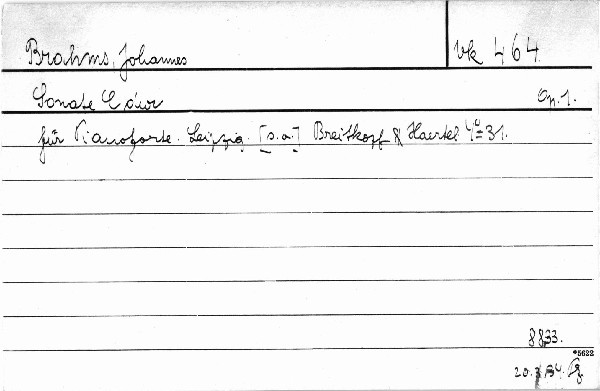 Brahms, Johannes
Vk 464
Sonate C dur Op. 1.
für Pianoforte. Leipzig. [s.a.] Breitkopf & Haertel 4°= 31.
8833.
*5622
20. 34.